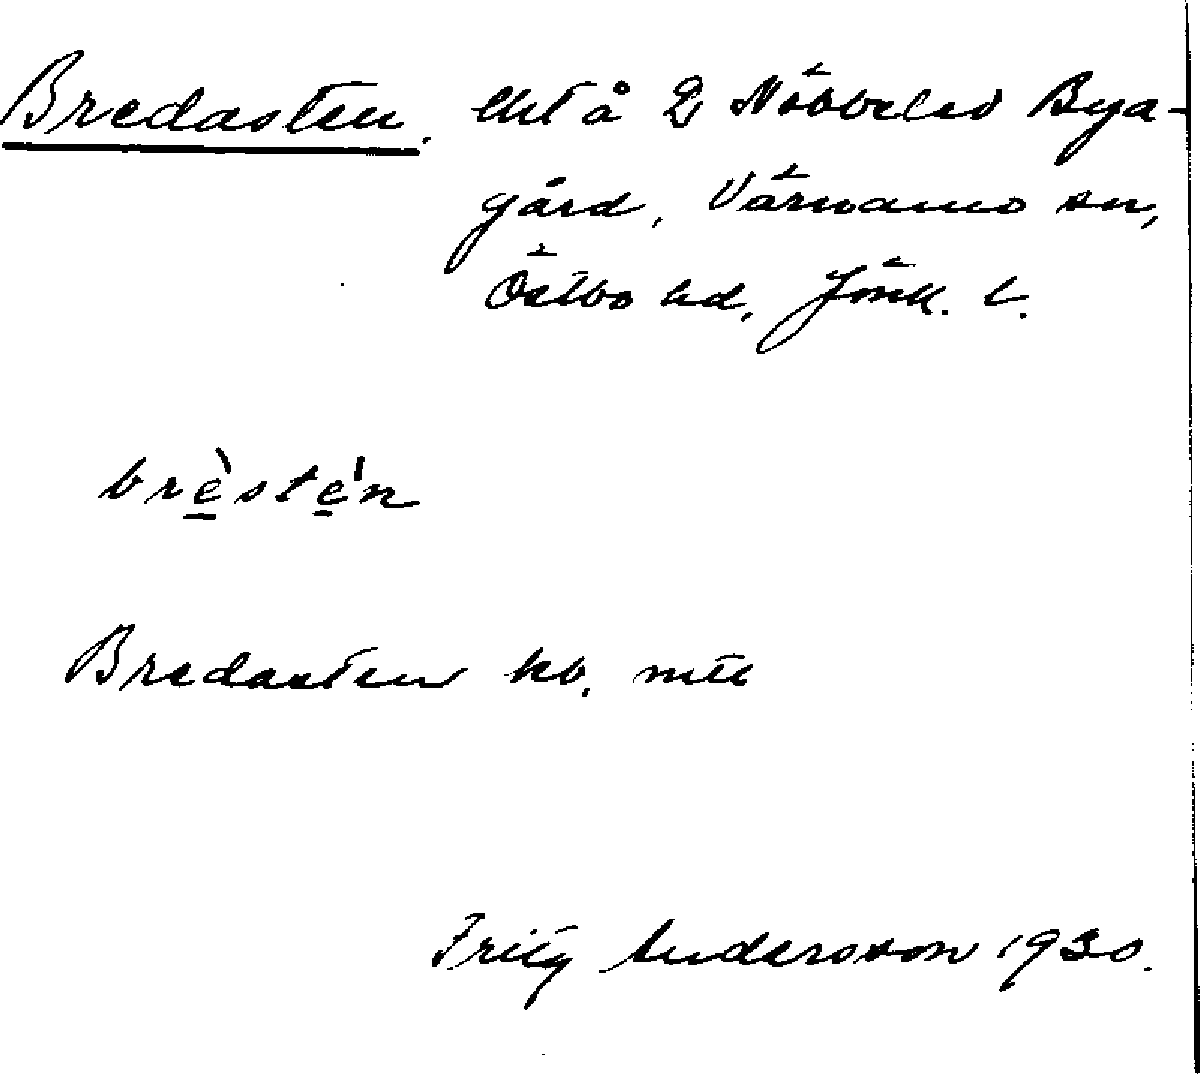 Bredasten. lht å 2 Nöbbeled Bya-
gård, Värnamo sn,
Östbo hd, Jönk. l.
brèste'n
Bredasten hb. mtl
Fritz Andersson 1930.